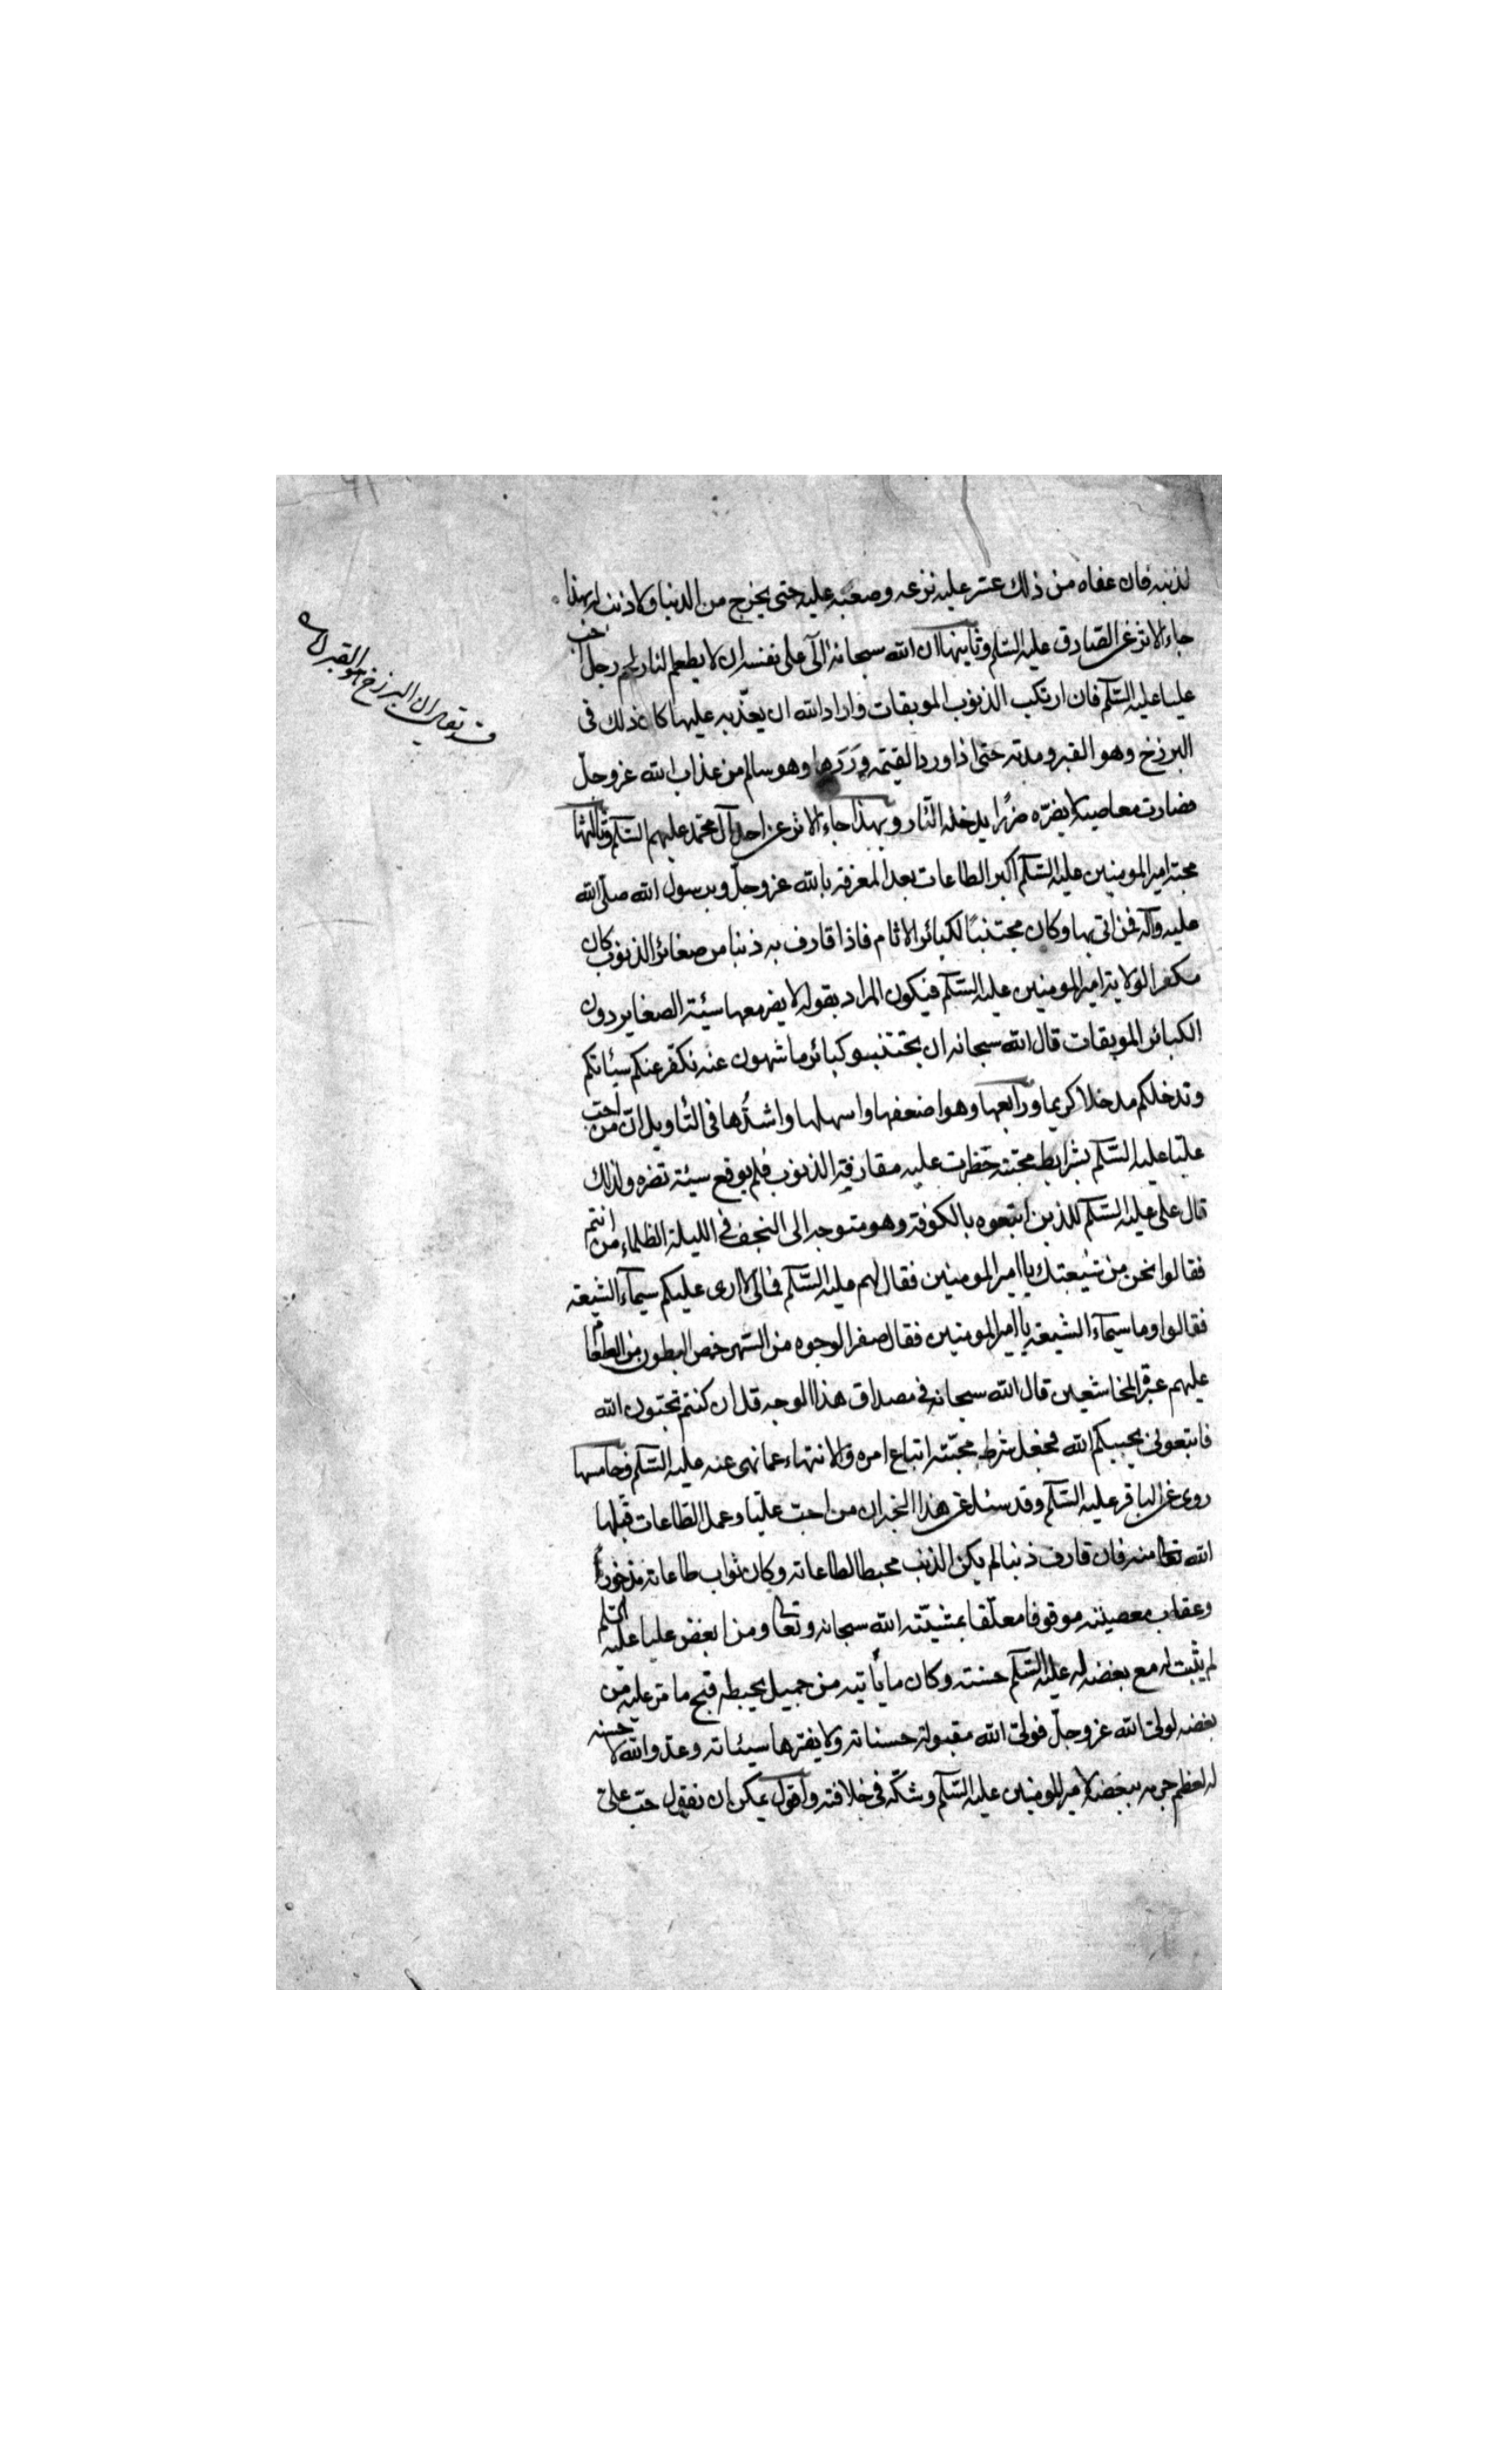 لذنبه فان عفاه من ذلك عسّر عليه نزعه وصعّبه عليه حتى يخرج من الدنيا ولا ذنب له بهذا
جاء الاثر عن الصّادق عليه السّلم وثانيها ان الله سبحانه آلى على نفسه ان لا يطعم النار لحم رجل احب
عليا عليه السّلم فان ارتكب الذنوب الموبقات واراد الله ان يعذّبه عليها كان ذلك فى
البرزخ وهو القبر ومدته حتى اذا ورد القيمة وردها وهو سالم من عذاب الله عز وجلّ
فصارت معاصيه لا يضرّه ضرّا يدخله النّار وبهذا جاء الاثر عن احد آل محمّد عليهم السّلم وثالثها
محبّة امير المومنين عليه السّلم اكبر الطاعات بعد المعرفة بالله عز وجلّ وبرسول الله صلّى الله
عليه وآله فمن اتى بها وكان مجتنبًا لكبائر الاثام فاذا قارف به ذنبا من صغائر الذنوب كان
مكفرا لولاية امير المومنين عليه السّلم فيكون المراد بقوله لا يضر معها سيئة الصغاير دون
الكبائر الموبقات قال الله سبحانه ان تجتنبوا كبائر ما تنهون عنه نكفّر عنكم سيئاتكم
وندخلكم مدخلا كريما ورابعها وهو اضعفها واسهلها واشدّها فى التّاويل ان من احبّ
عليّا عليه السّلم بشرايط محبّته حظرت عليه مقارفة الذنوب فلم يوقع سيئة تضره ولذلك
قال على عليه السّلم للذين اتبعوه بالكوفة وهو متوجه الى النجف فى الليلة الظلماء من انتم
فقالوا نحن من شيعتك يا امير المومنين فقال لهم عليه السّلم فمالى لا ارى عليكم سيمآء الشيعة
فقالوا وما سيمآء الشيعة يا امير المومنين فقال صفر الوجوه من السّهر خمص البطون من الطعام
عليهم عبرة الخاشعين قال الله سبحانه فى مصداق هذا الوجه قل ان كنتم تحبّون الله
فاتبعونى يحببكم الله فجعل شرط محبّته اتباع امره والانتهاء عما نهى عنه عليه السّلم وخامسها
روى عن الباقر عليه السّلم وقد سئل عن هذا الخبر ان من احبّ عليّا وعمل الطّاعات قبلها
الله تعا منه فان قارف ذنبا لم يكن الذنب محبطا لطاعاته وكان ثواب طاعاته مذخوراً
وعقاب معصيته موقوفا معلّقا بمشيّته الله سبحانه وتعا ومن ابغض عليا عليه السّلم
لم يثبت له مع بغضه له عليه السّلم حسنة وكان ما يأتيه من جميل يحبطه قبح ما من عليه من
بغضه لولىّ الله عز وجلّ فولىّ الله مقبولة حسناته ولا يضرّها سيئاته وعدو الله لا حسنة
له لعظم جرمه ببغضه لامير المومنين عليه السّلم وشكّه فى خلافته واقول يمكن ان نقول حبّ على
ان البرزخ هو القبر